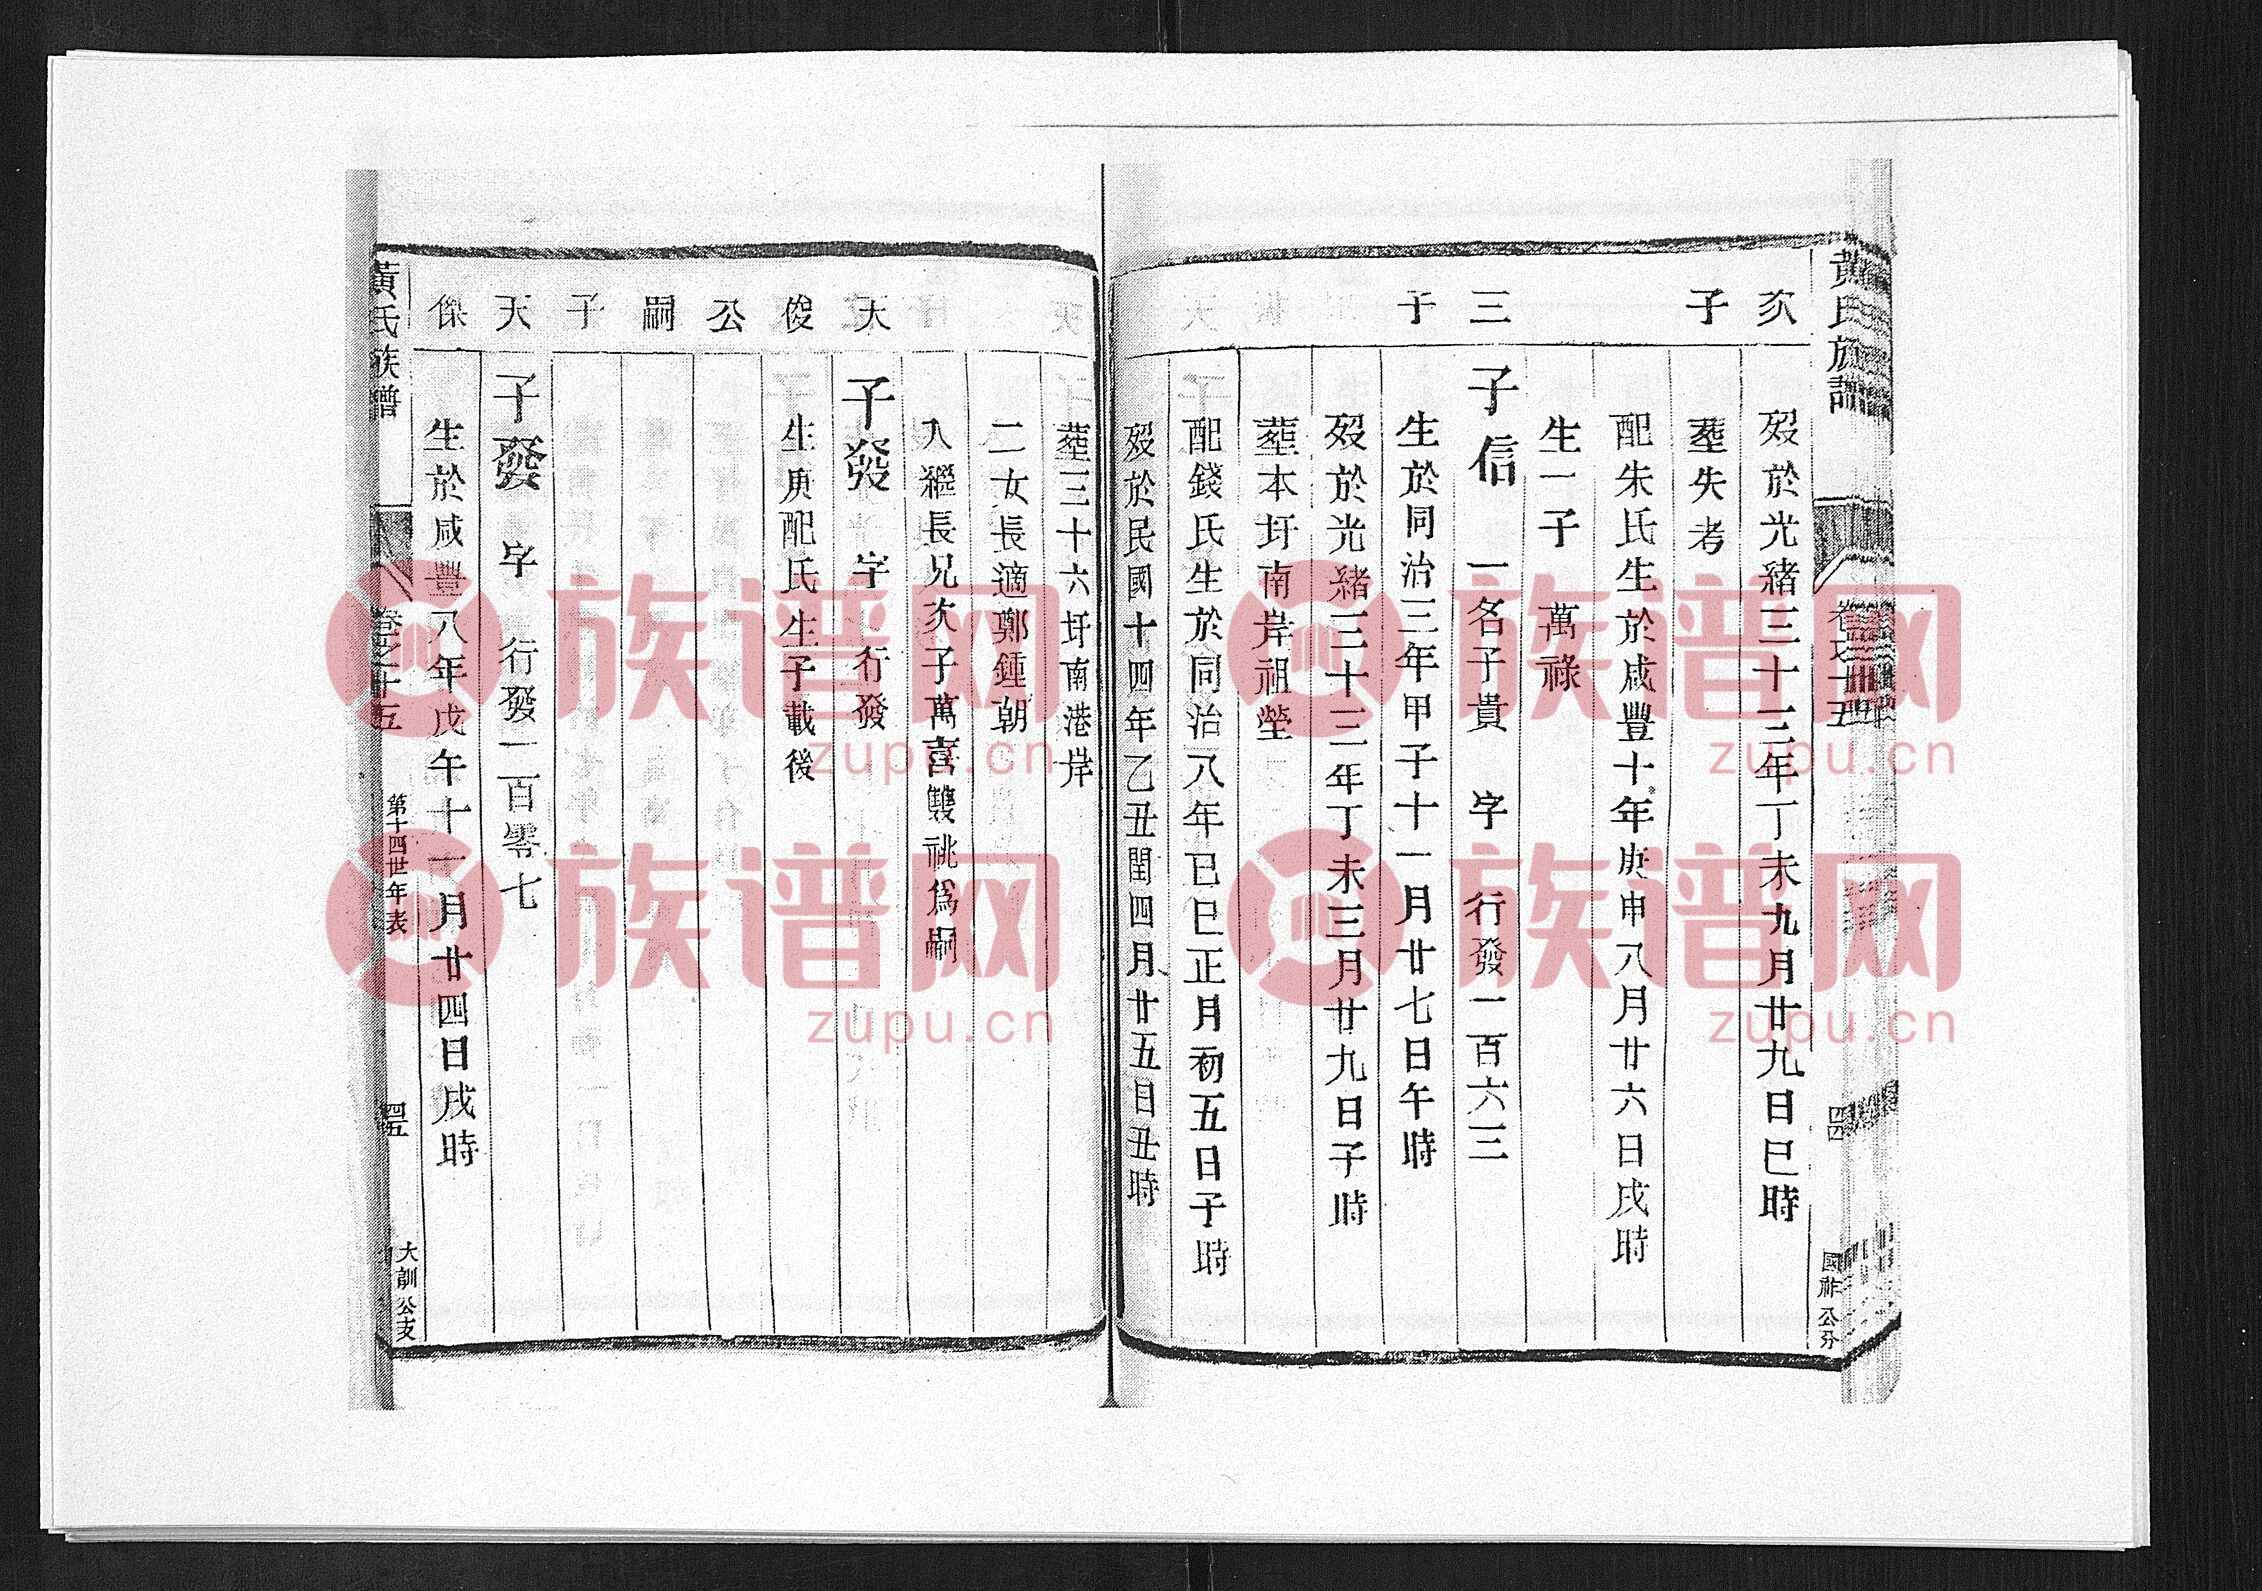 黃氏族譜
卷之十五
四四
國祚公分
次
歿於光緒三十三年丁未九月廿九日巳時
子
塟失考
配朱氏生於咸豐十年庚申八月廿六日戌時
生一子 萬祿
三
子信 一名子貴 字 行發一百六三
子
生於同治三年甲子十一月廿七日午時
歿於光緒三十三年丁未三月廿九日子時
塟本圩南岸祖塋
配錢氏生於同治八年己巳正月初五日子時
歿於民國十四年乙丑閏四月廿五日丑時
塟三十六圩南港岸
二女長適鄭鍾朝
入繼長兄次子萬喜雙祧爲嗣
大
子發 字 行發
俊
生庚配氏生子載後
公
嗣
子
天
子發 字 行發一百零七
傑
生於咸豐八年戊午十一月廿四日戌時
黃氏族譜
卷之十五
第十四世年表
四五
大訓公支
族谱网
zupu.cn
族谱网
zupu.cn
族谱网
zupu.cn
族谱网
zupu.cn